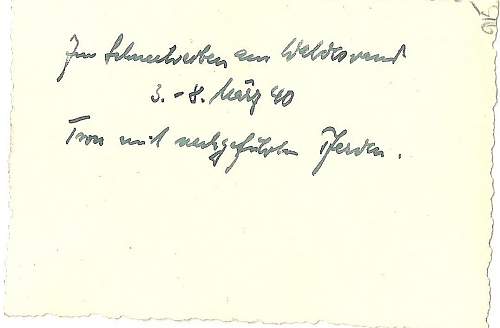 Im Schneetreiben am Waldesrand
3. - 8. März 40
Tross mit nachgeführten Pferden.